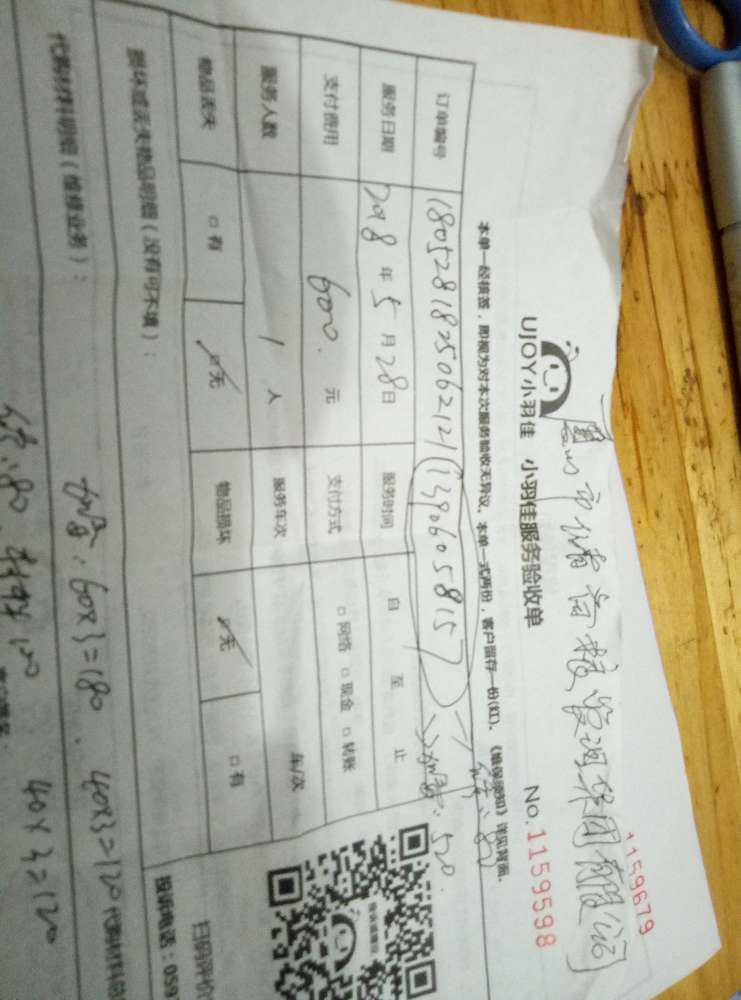 1159679
厦门市
管理集团有限公司
UJOY小羽佳 小羽佳服务验收单 No.11159598
本单一经核签，即视为对本次服务验收无异议。本单一式两份，客户留存一份(红)。《维保须知》详见背面。
订单编号 1805281825062121 (13806058157)
服务日期 2018 年 5 月 28 日 服务时间 自 至 止
支付费用 600. 元 支付方式 □网络 □现金 □转账
服务人数 1 人 服务车次 车/次
物品丢失 □有 ☑无 物品损坏 ☑无 □有
损坏或丢失物品明细（没有可不填）：
扫码评价
投诉电话：059
代购材料明细（维修业务）：
60×3=180. 40×3=120
代购材料总
40×3=120